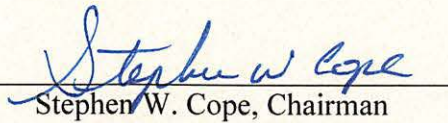 Stephen W Cope
Stephen W. Cope, Chairman